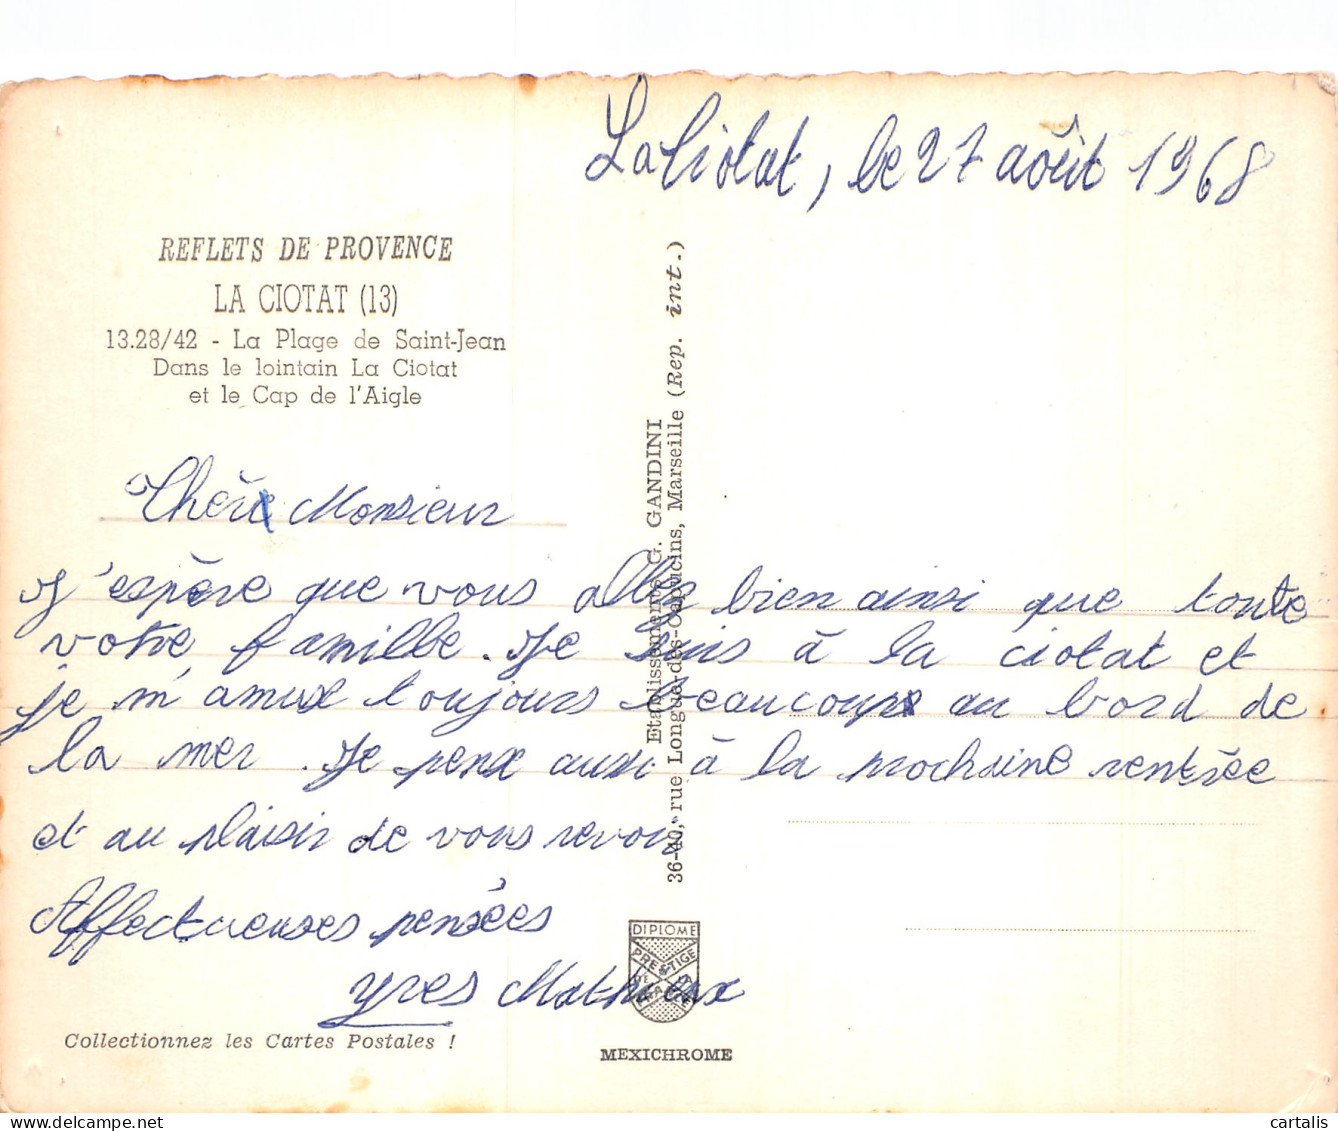 La Ciotat, le 27 août 1968
REFLETS DE PROVENCE
LA CIOTAT (13)
13.28/42 - La Plage de Saint-Jean
Dans le lointain La Ciotat
et le Cap de l'Aigle
Chère Monsieur
J'espère que vous allez bien ainsi que toute
votre famille. Je suis à la ciotat et
je m'amuse toujours beaucoup au bord de
la mer. Je pense aussi à la prochaine rentrée
et au plaisir de vous revoir
Affectueuses pensées
yves Mathieux
Collectionnez les Cartes Postales !
Etablissements G. GANDINI
36-40, rue Longue-des-Capucins, Marseille (Rep. int.)
DIPLOME
PRESTIGE
MEXICHROME
cartalis